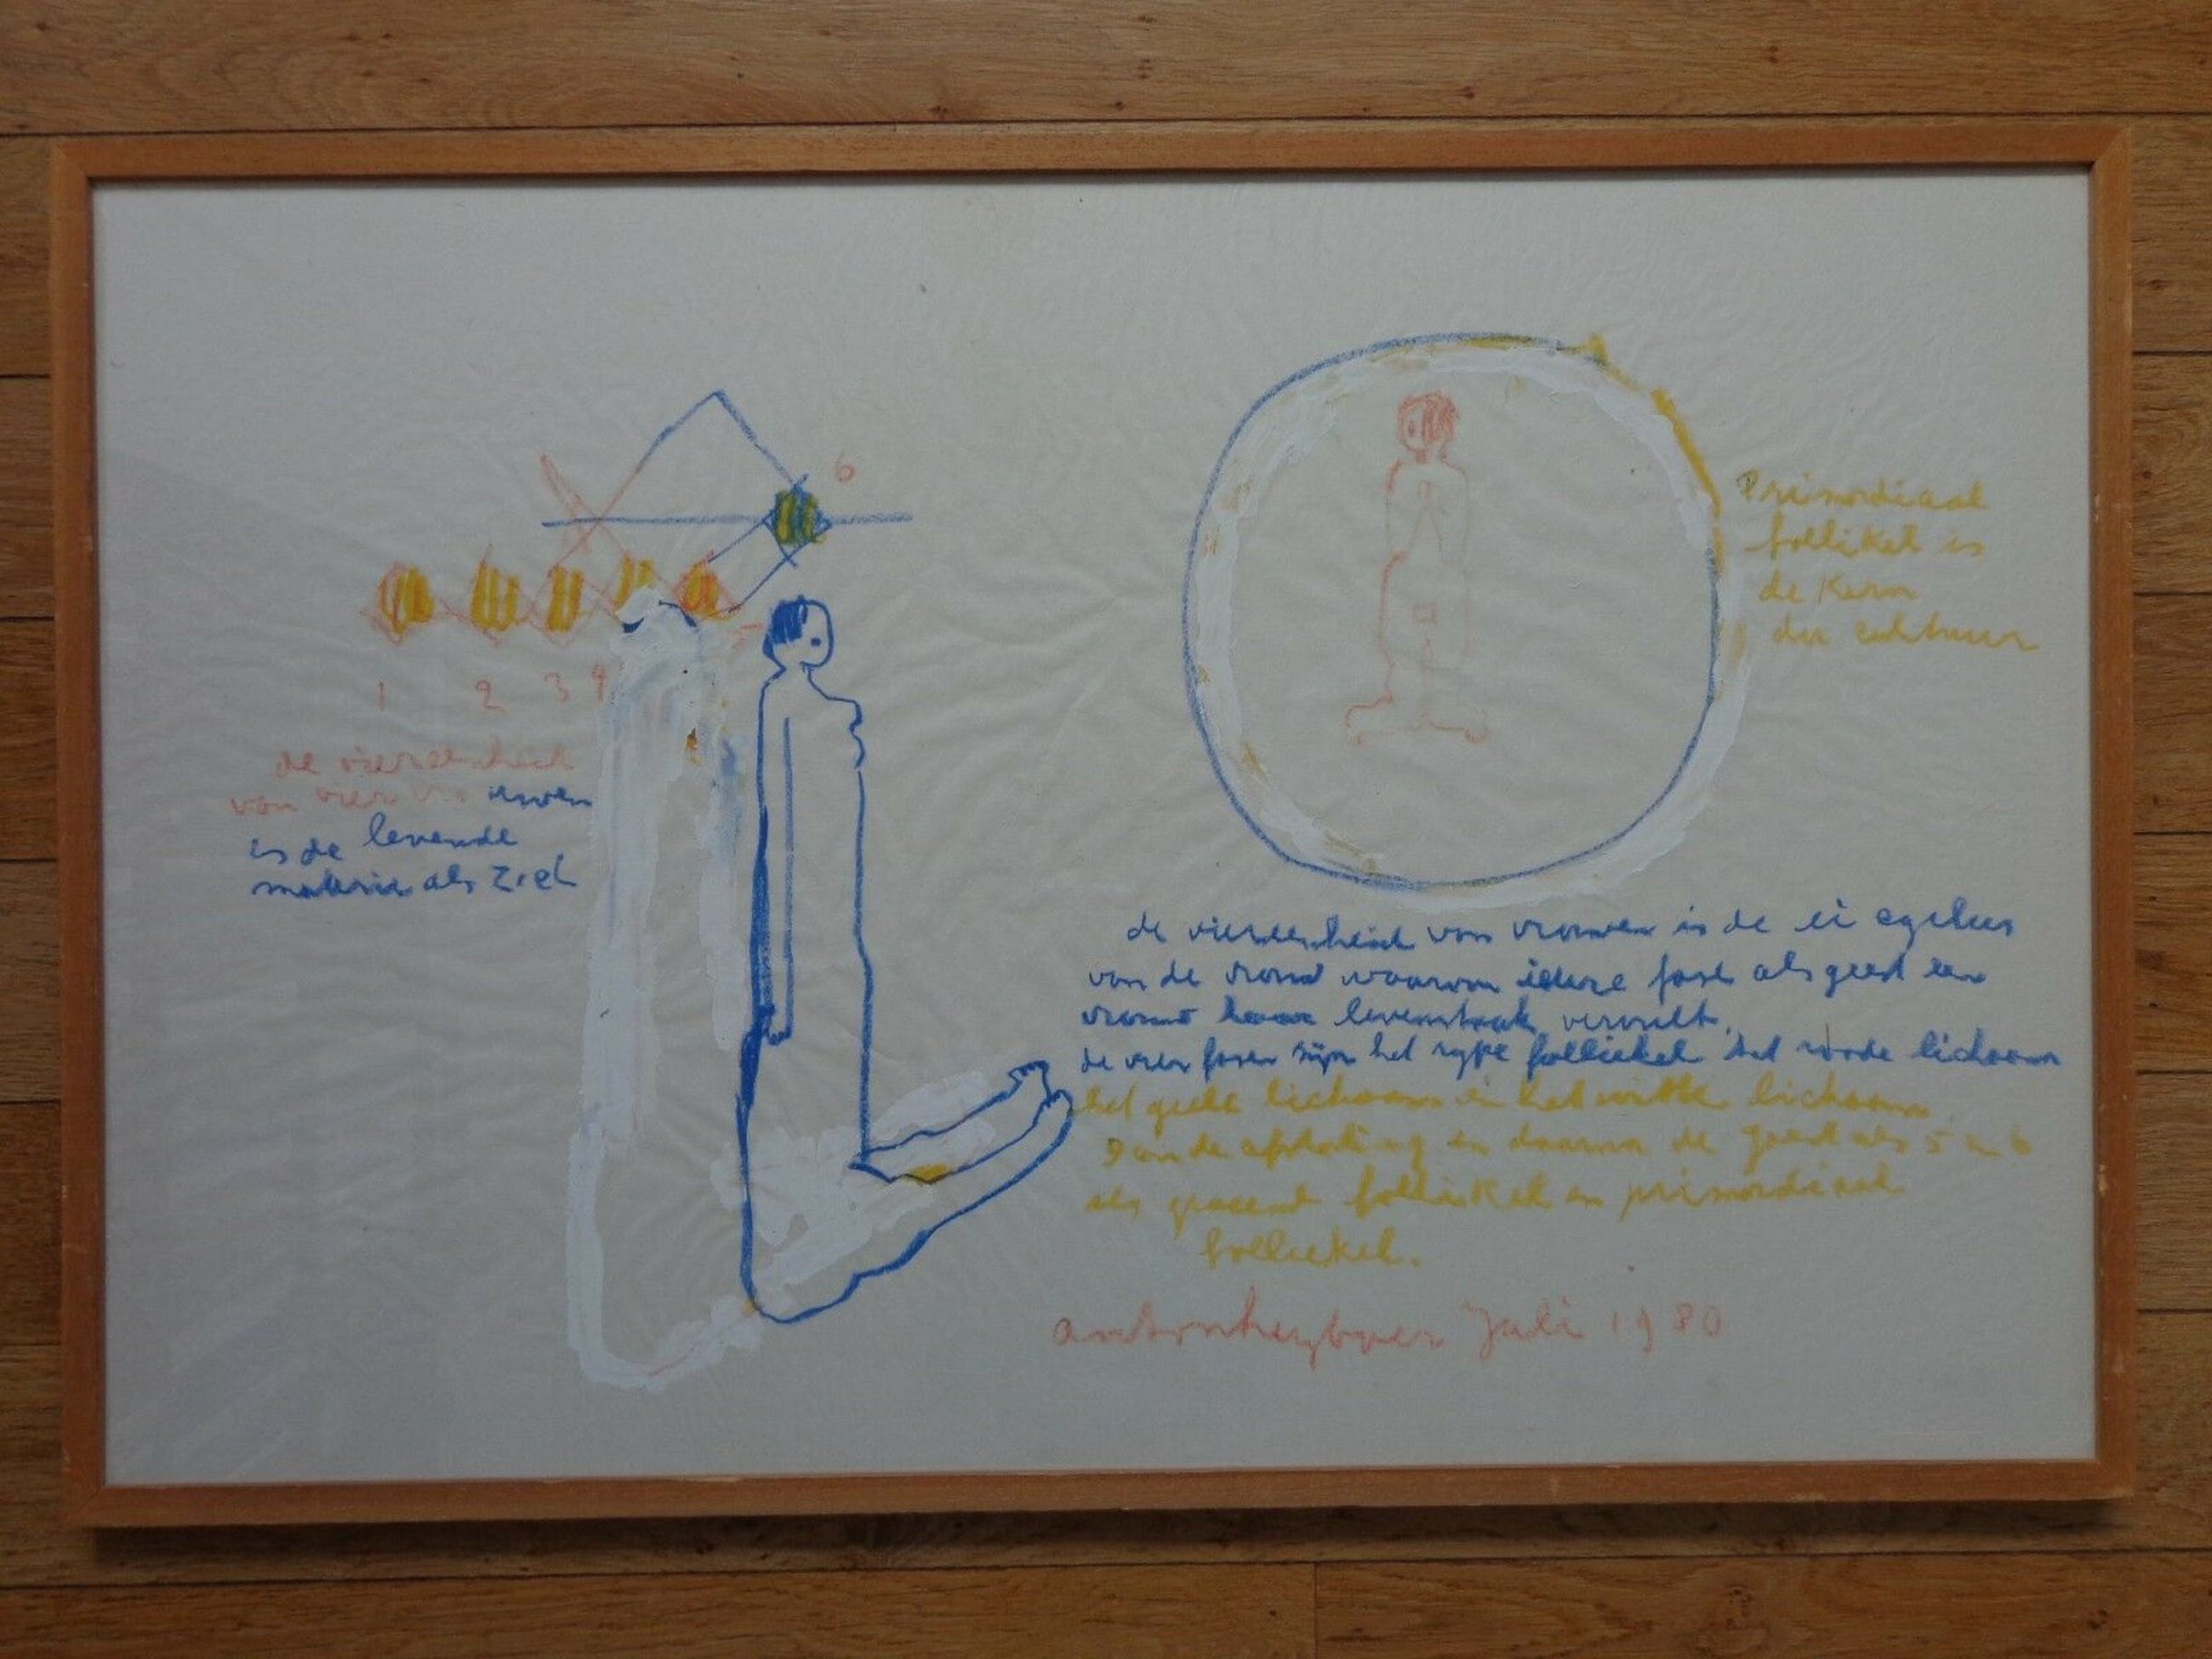 6
1 2 3 4 5
de viereenheid
van vier vrouwen
is de levende
materie als Ziel
Primordiaal
follikel is
de Kern
der cultuur
de viereenheid van vrouwen is de ei cyclus
van de vrouw waarvan iedere fase als geest een
vrouw haar levenstaak vervult.
de vier fasen zijn het rype folliekel het roode lichaam
het geele lichaam en het witte lichaam
Dan de afsluiting en daarna de geest als 5 en 6
als graeend follikel en primordiaal
folliekel.
antonheyboer Juli 1980